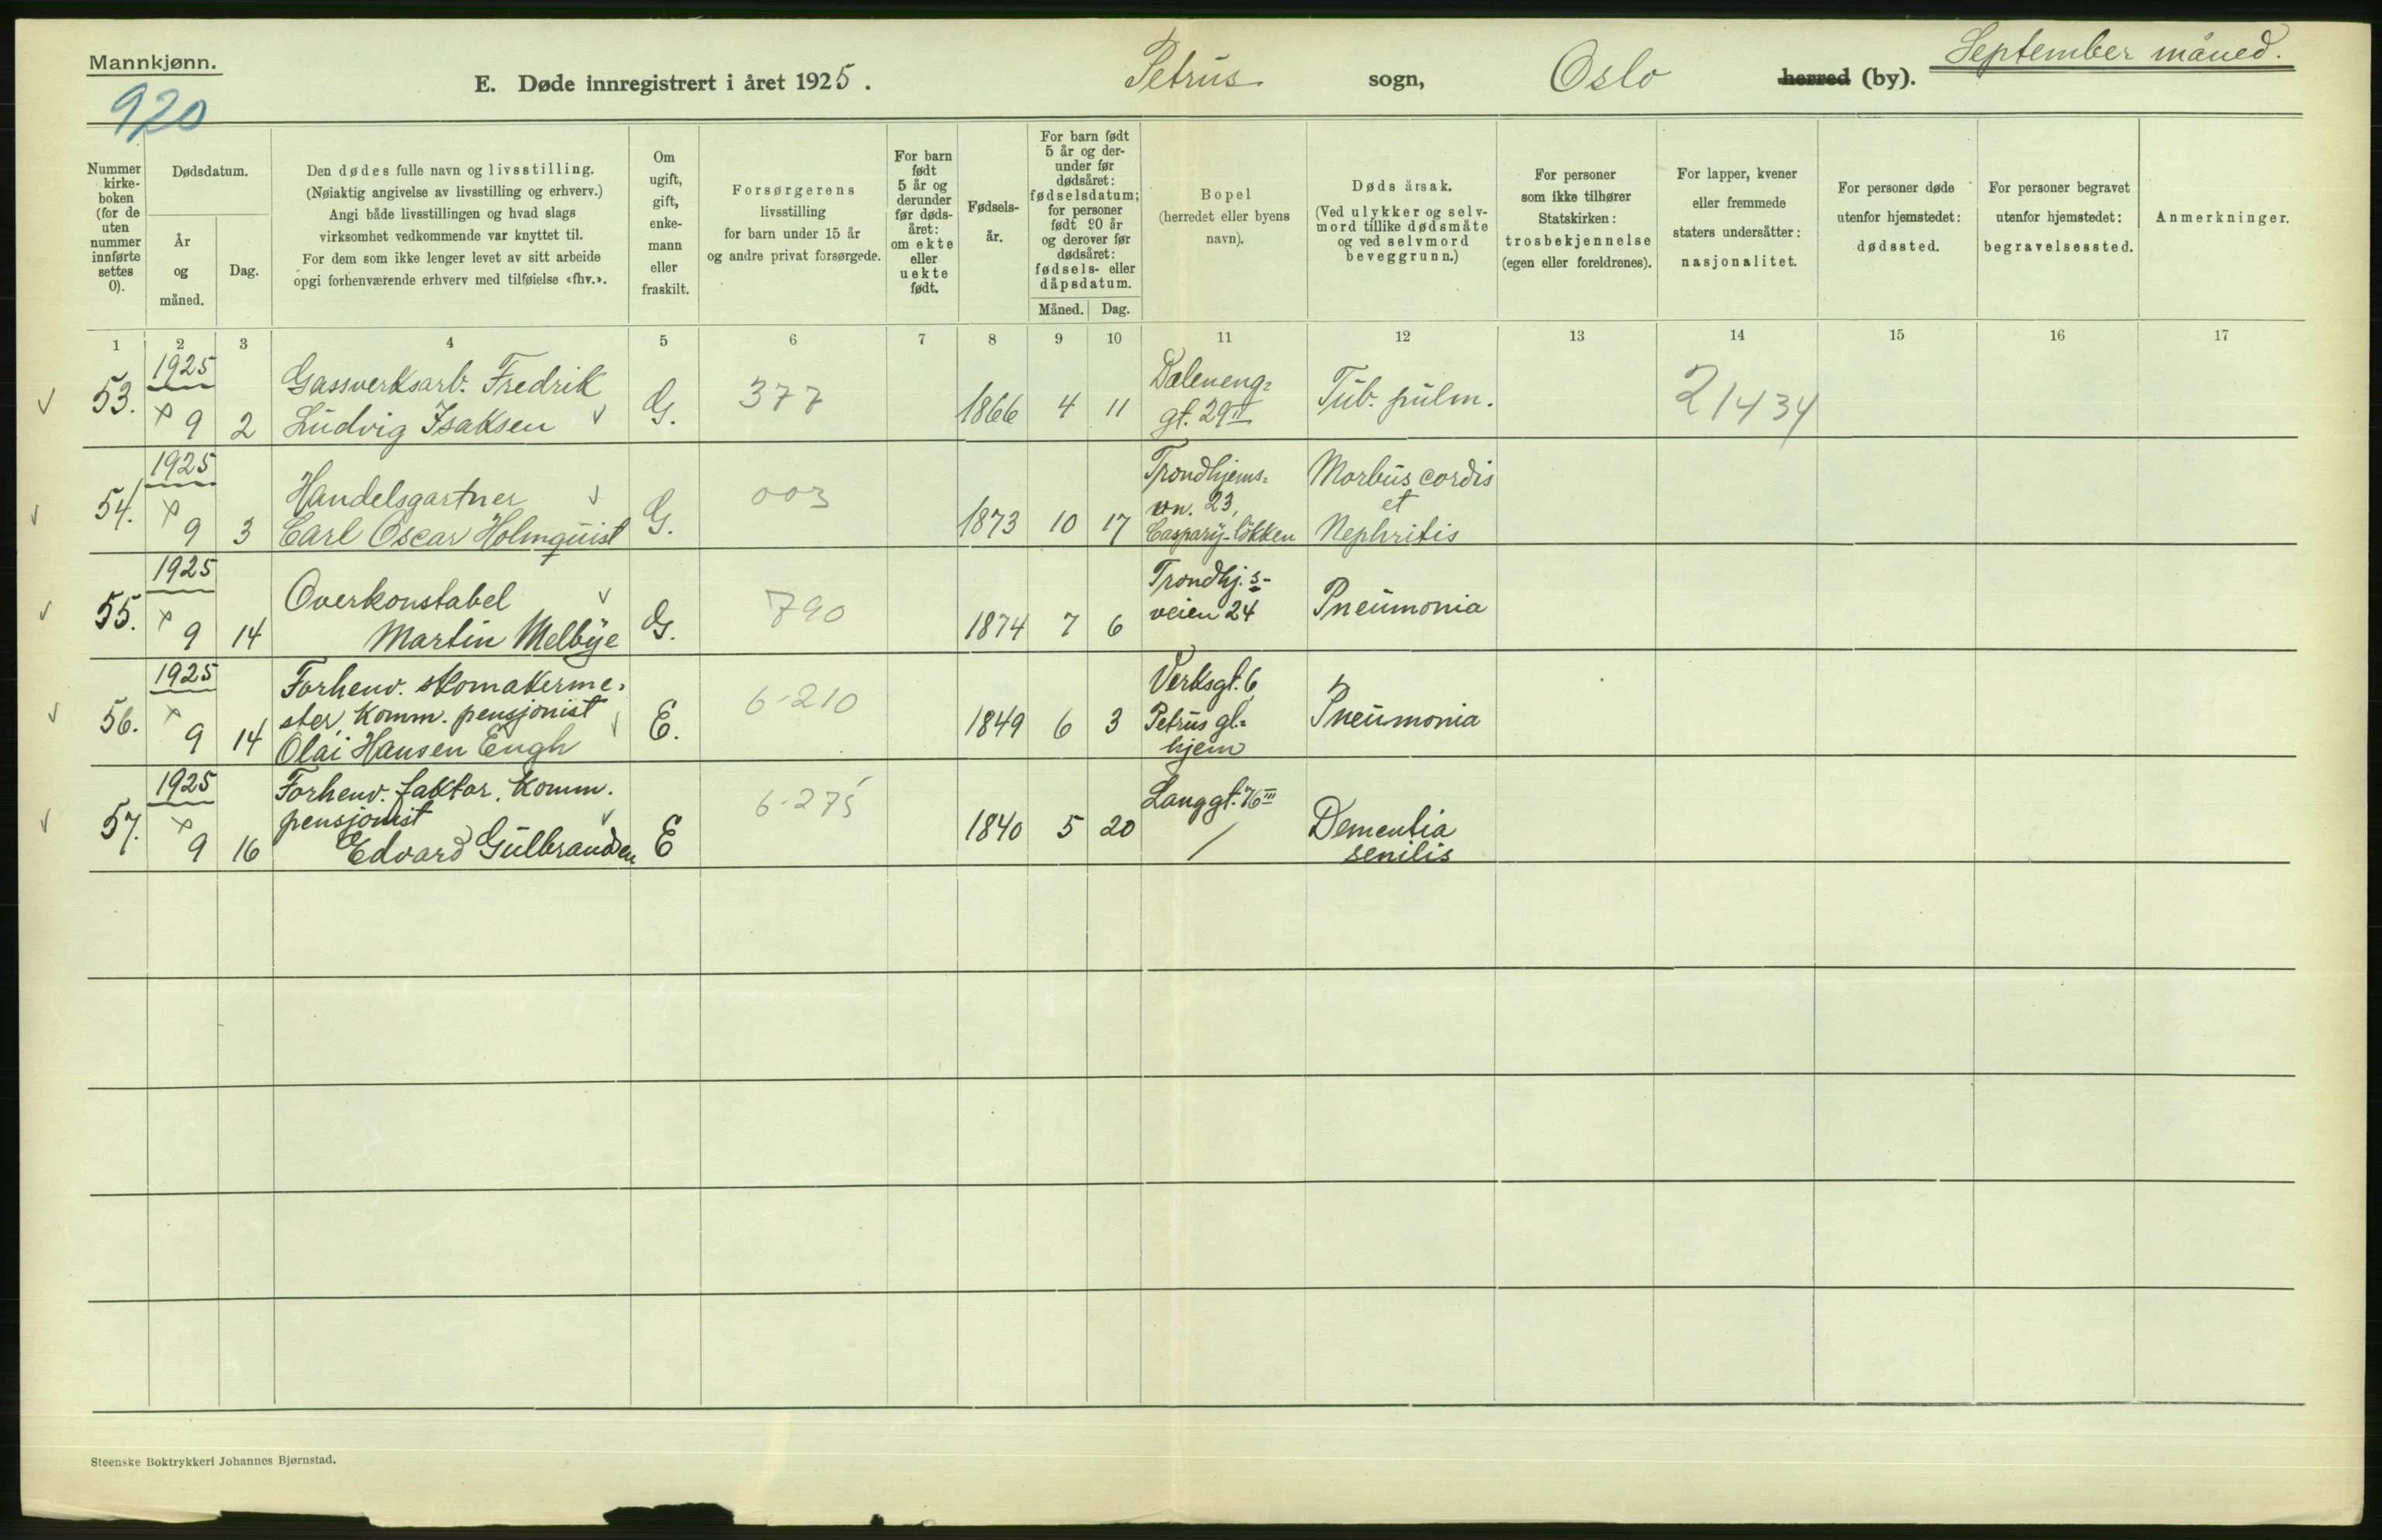 Mannkjønn.
920
E. Døde innregistrert i året 1925.
Petrus sogn, Oslo herred (by).
September måned.
Nummer
kirke-
boken
(for de
uten
nummer
innførte
settes
0).
Dødsdatum.
År
og
måned.
Dag.
Den dødes fulle navn og livsstilling.
(Nøiaktig angivelse av livsstilling og erhverv.)
Angi både livsstillingen og hvad slags
virksomhet vedkommende var knyttet til.
For dem som ikke lenger levet av sitt arbeide
opgi forhenværende erhverv med tilføielse «fhv.».
Om
ugift,
gift,
enke-
mann
eller
fraskilt.
Forsørgerens
livsstilling
for barn under 15 år
og andre privat forsørgede.
For barn
født
5 år og
derunder
før døds-
året:
om ekte
eller
uekte
født.
Fødsels-
år.
For barn født
5 år og der-
under før
dødsåret:
fødselsdatum;
for personer
født 90 år
og derover før
dødsåret:
fødsels- eller
dåpsdatum.
Måned. Dag.
Bopel
(herredet eller byens
navn).
Døds årsak.
(Ved ulykker og selv-
mord tillike dødsmåte
og ved selvmord
beveggrunn.)
For personer
som ikke tilhører
Statskirken:
trosbekjennelse
(egen eller foreldrenes).
For lapper, kvener
eller fremmede
staters undersåtter:
nasjonalitet.
For personer døde
utenfor hjemstedet:
dødssted.
For personer begravet
utenfor hjemstedet:
begravelsessted.
Anmerkninger.
1 2 3 4 5 6 7 8 9 10 11 12 13 14 15 16 17
53.
1925
9 2
Gassverksarb. Fredrik
Ludvig Isaksen
G.
377
1866 4 11
Daleneng=
gt. 29 II
Tub. pulm.
21434
54.
1925
9 3
Handelsgartner
Carl Oscar Holmquist
G.
003
1873 10 17
Trondhjems=
vn. 23,
Caspary-løkken
Morbus cordis
et
Nephritis
55.
1925
9 14
Overkonstabel
Martin Melbye
G.
790
1874 7 6
Trondhj.s-
veien 24
Pneumonia
56.
1925
9 14
Forhenv. skomakerme=
ster, Komm. pensjonist
Olai Hansen Engh
E.
6-210
1849 6 3
Verksgt. 6
Petrus gl=
hjem
Pneumonia
57.
1925
9 16
Forhenv. faktor, Komm.
pensjonist
Edvard Gulbrandsen
E
6-275
1840 5 20
Langgt. 76 III
Dementia
senilis
Steenske Boktrykkeri Johannes Bjørnstad.